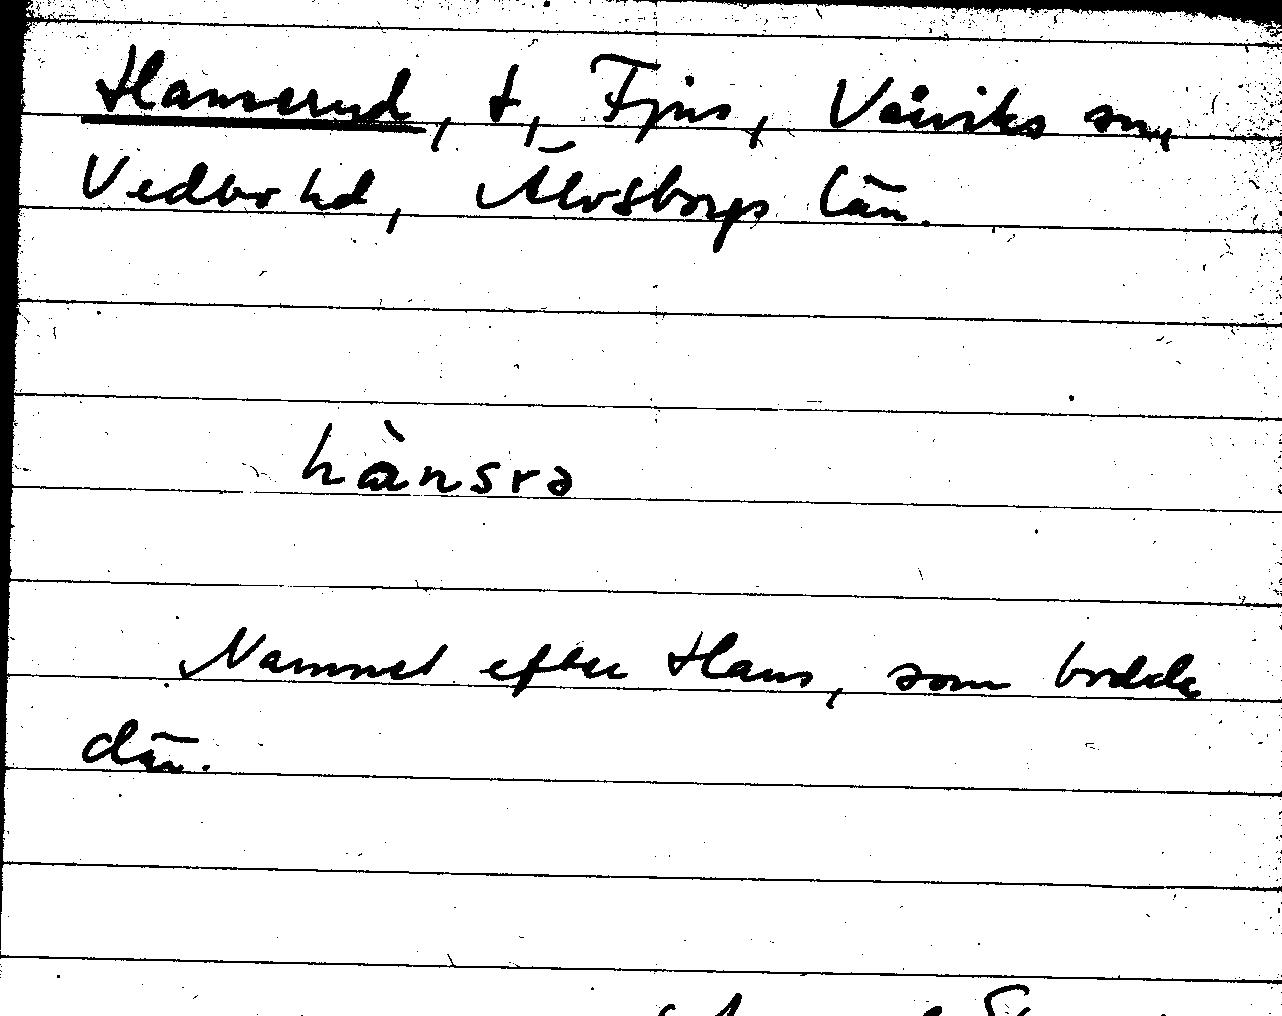 Hanserud, t, Fjus, Vårviks sn,
Vedbo hd, Älvsborgs län.
hànsrə
Namnet efter Hans, som bodde
där.